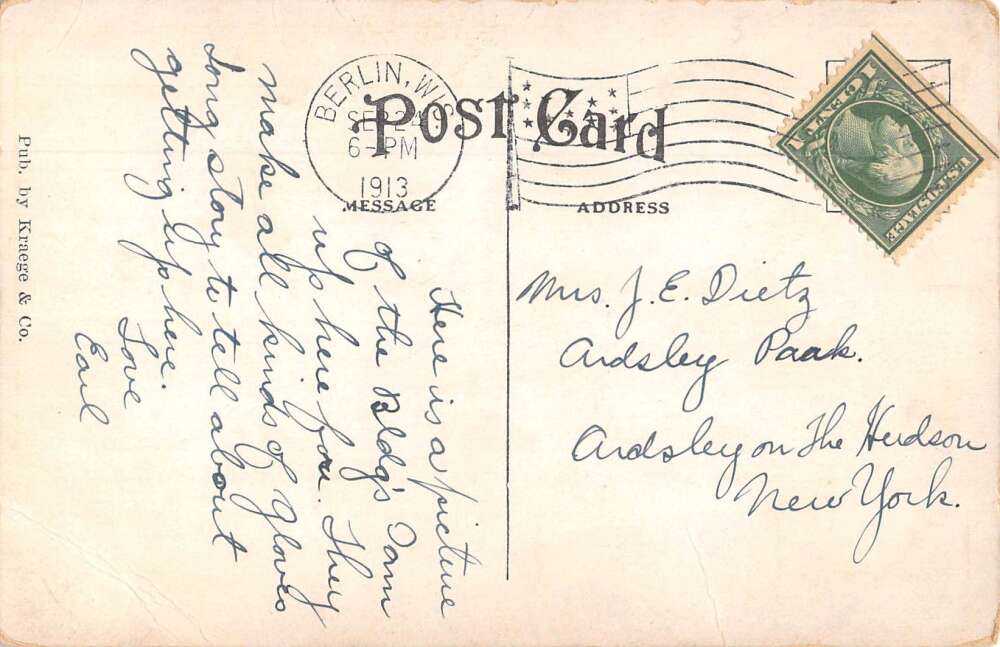 Post Card
BERLIN, WIS.
SEP 24
6-PM
1913
MESSAGE
ADDRESS
U.S. POSTAGE
Here is a picture
of the Bldg's I am
up here for. They
make all kinds of Gloves
Long story to tell about
getting up here.
Love
Earl
Mrs. J. E. Dietz
Ardsley Paak.
Ardsley on The Hudson
New York.
Pub. by Kraege & Co.